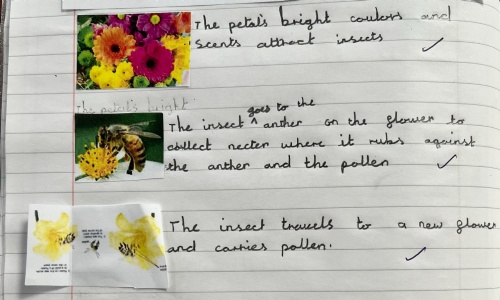 The petals bright coulors and
scents attract insects
The petal's bright
The insect goes to the anther on the glower to
collect necter where it rubs against
the anther and the pollen
The insect travels to a new glower
and carries pollen.